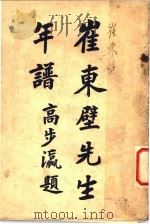 崔東壁先生
年譜 高步瀛題
崔東壁